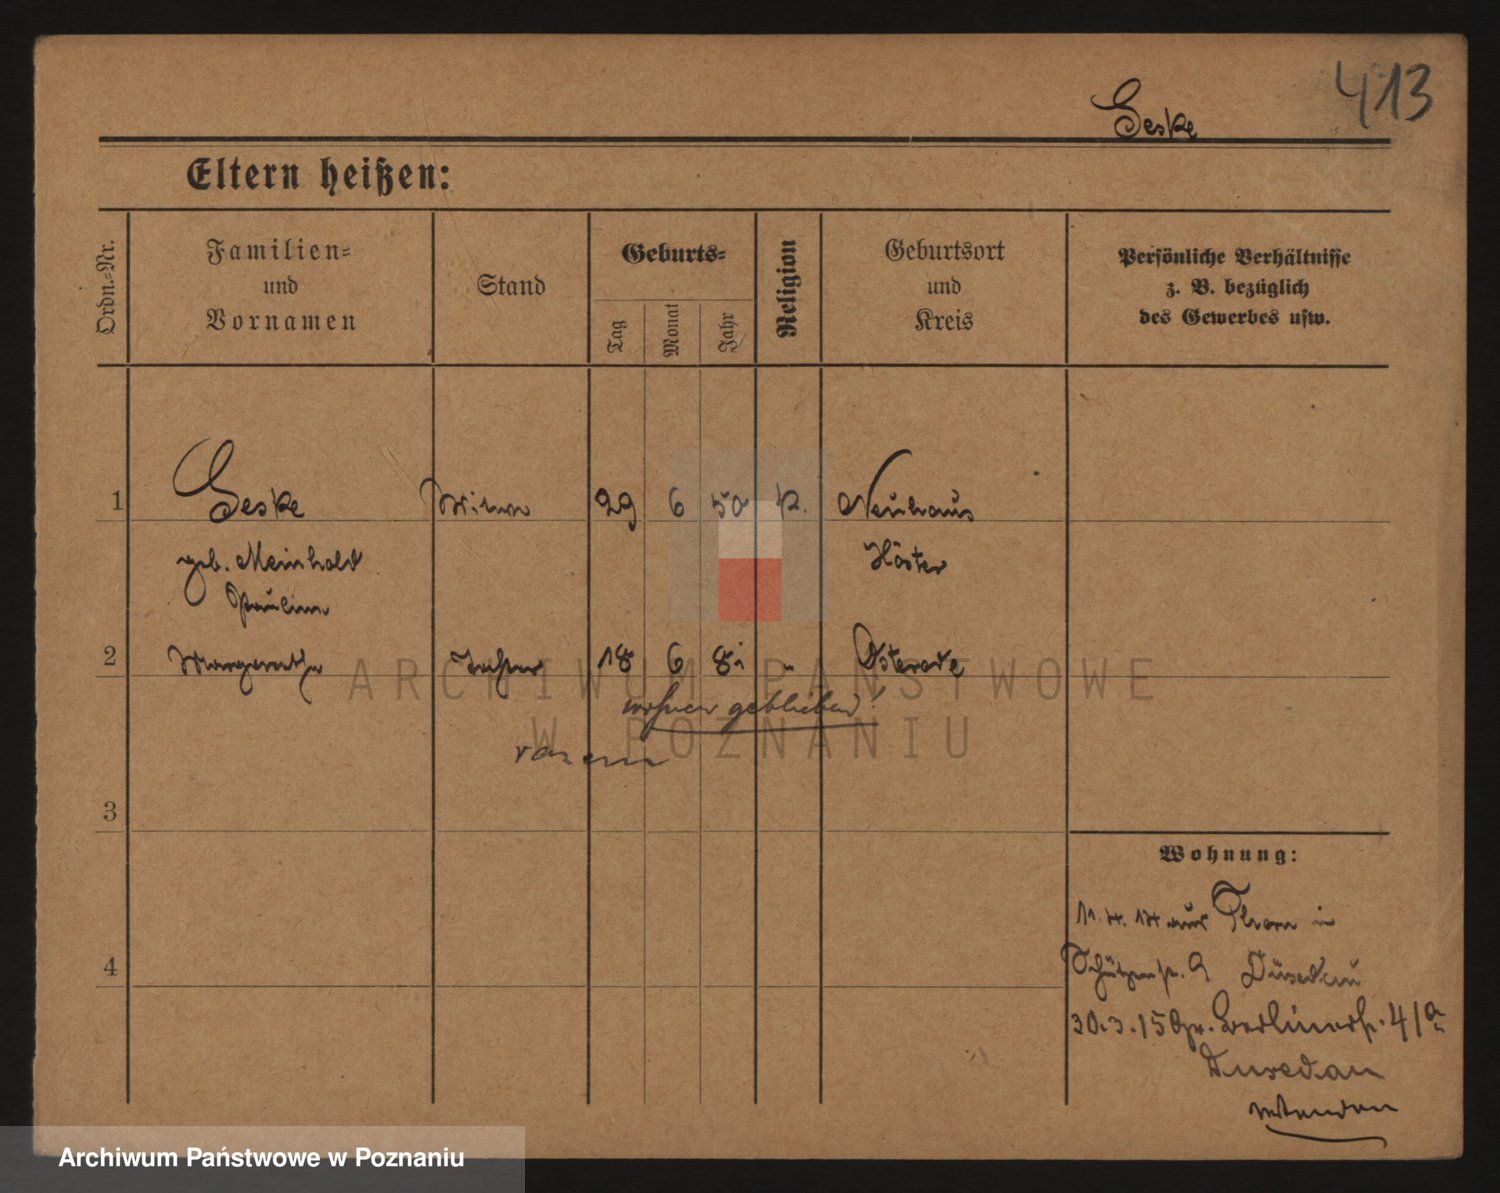 413
Geske
Eltern heißen:
Ordn.-Nr.
Familien-
und
Vornamen
Stand
Geburts-
Tag
Monat
Jahr
Religion
Geburtsort
und
Kreis
Persönliche Verhältnisse
z. B. bezüglich
des Gewerbes usw.
1 Geske Witwe 29 6 50 k. Neuhaus
geb. Meinhold Höxter
Pauline
2 Margarethe Tochter 18 6 81 " Osterode
wohnen geblieben!
3
Wohnung:
11.4.14 aus Thorn in
4
Schützenstr. 9
30.3.15 Gr. Berlinerstr. 41a
ARCHIWUM PAŃSTWOWE
W POZNANIU
Archiwum Państwowe w Poznaniu